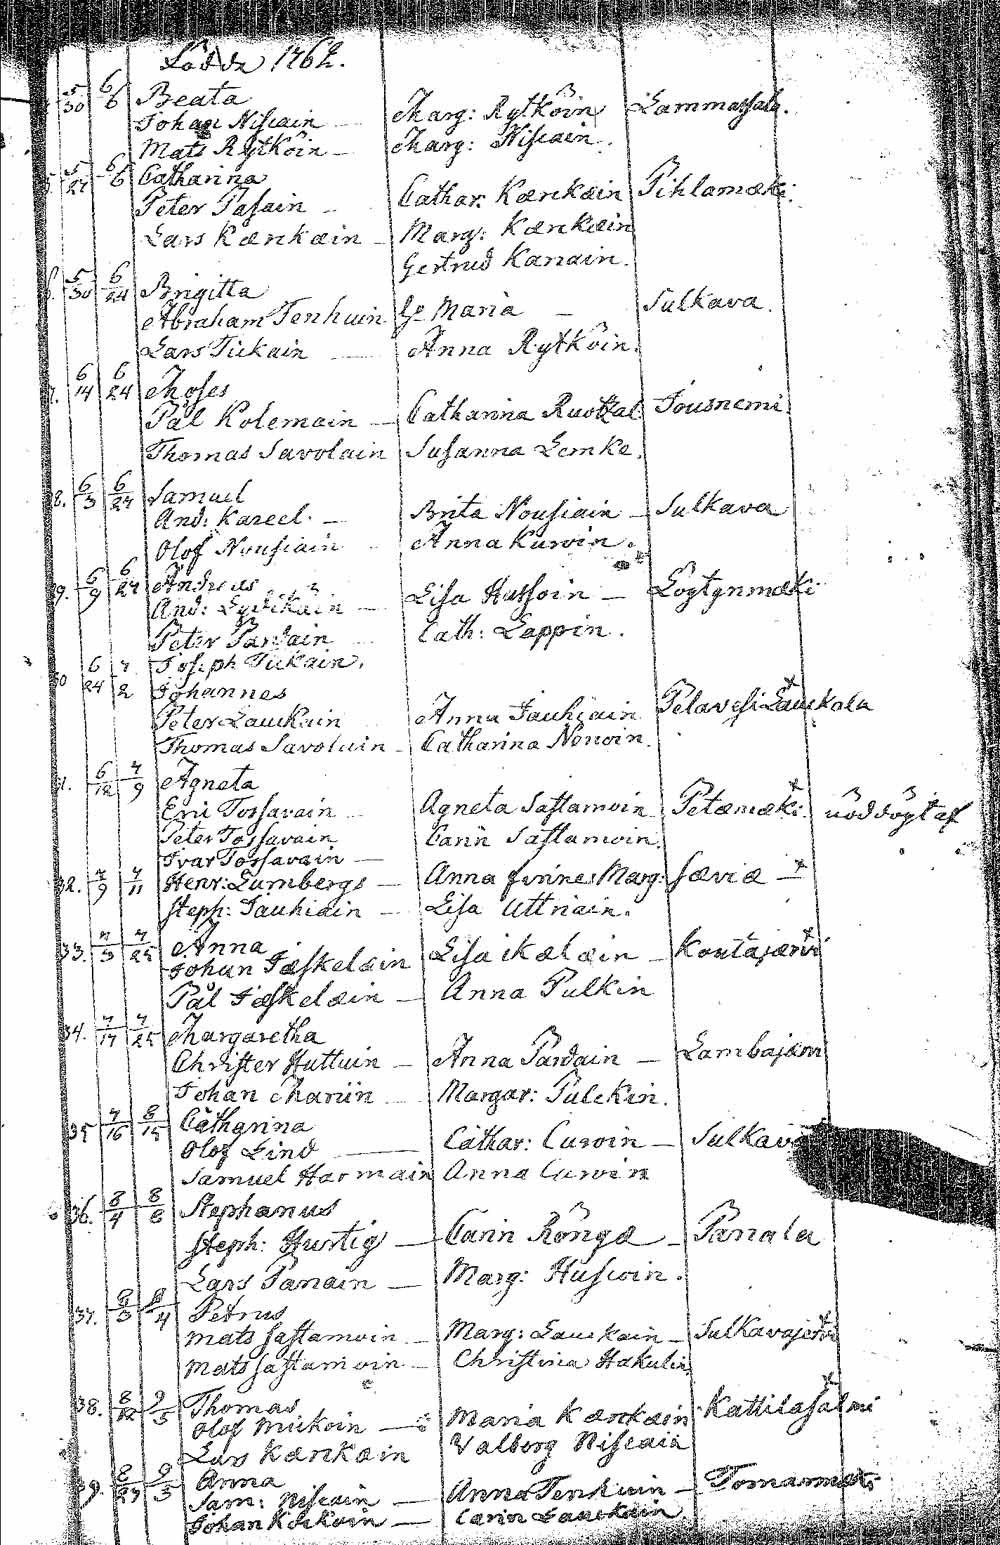 Födda 1762.
5/30 6/6 Beata
Johan Niscain — Marg: Rytköin Lammassalo.
Mats Rytköin — Marg: Niscain.
5/27 6/6 Catharina
Peter Pasain — Cathar. Kærkæin Pihlamæki.
Lars Kærkæin — Marg: Kærkæin
Gertrud Kanain.
5/30 6/24 Brigitta
Abraham Tenhuin Maria — Sulkava.
Lars Tickain — Anna Rytköin.
6/14 6/24 Moses
Pål Kolemain — Catharina Ruotzal. Jousnemi.
Thomas Savolain Susanna Lemke.
28. 6/3 6/24 Samuel
And: Kareel. — Brita Nousiain — Sulkava
Olof Nousiain — Anna Kurvin.
29. 6/9 6/24 Andreas
And: Lydikäin — Lisa Hussoin — Lögtynmæki
Peter Pardain Cath: Lappin.
30 6/24 7/2 Joseph Tickain.
Johannes
Peter Lauckain Anna Jauhiain Pelavesi Lauckala
Thomas Savolain — Catharina Noroin.
31. 6/12 7/9 Agneta
Eric Tossavain Agneta Sastamoin Petæmæki. nöddögt af
Peter Tossavain Carin Sastamoin.
Ivar Tossavain —
32. 7/9 7/11 Henr: Lumbergs — Anna finne: Marg: Sæviæ —
Steph: Jauhiain — Lisa Uttriain.
33. 7/3 7/25 Anna
Johan Jæskelæin Lisa ikælæin — Koutajærvi
Pål Jæskelæin — Anna Pulkin
34. 7/17 7/25 Margaretha
Christer Huttuin — Anna Pardain — Lambajærvi
Johan Mariin Margar: Pulckin.
35 7/16 8/15 Catharina
Olof Lind — Cathar: Curvin — Sulkava
Samuel Harmain Anna Curvin
36. 8/4 8/8 Stephanus
Steph: Hurtig — Carin Röngæ — Panala
Lars Panain — Marg: Huscoin.
37. 8/3 8/4 Petrus
Mats Sastamoin — Marg: Lauckain — Sulkavajervi
Mats Sastamoin — Christina Hakulin
38. 8/12 9/5 Thomas
Olof Mickoin — Maria Kærkæin Kattilasalmi
Lars Kærkæin Valborg Niscain
39. 8/29 9/3 Anna
Sam: Niscain — Anna Tenhuin — Tomarmæki
Johan Kockoin — Carin Lauckain